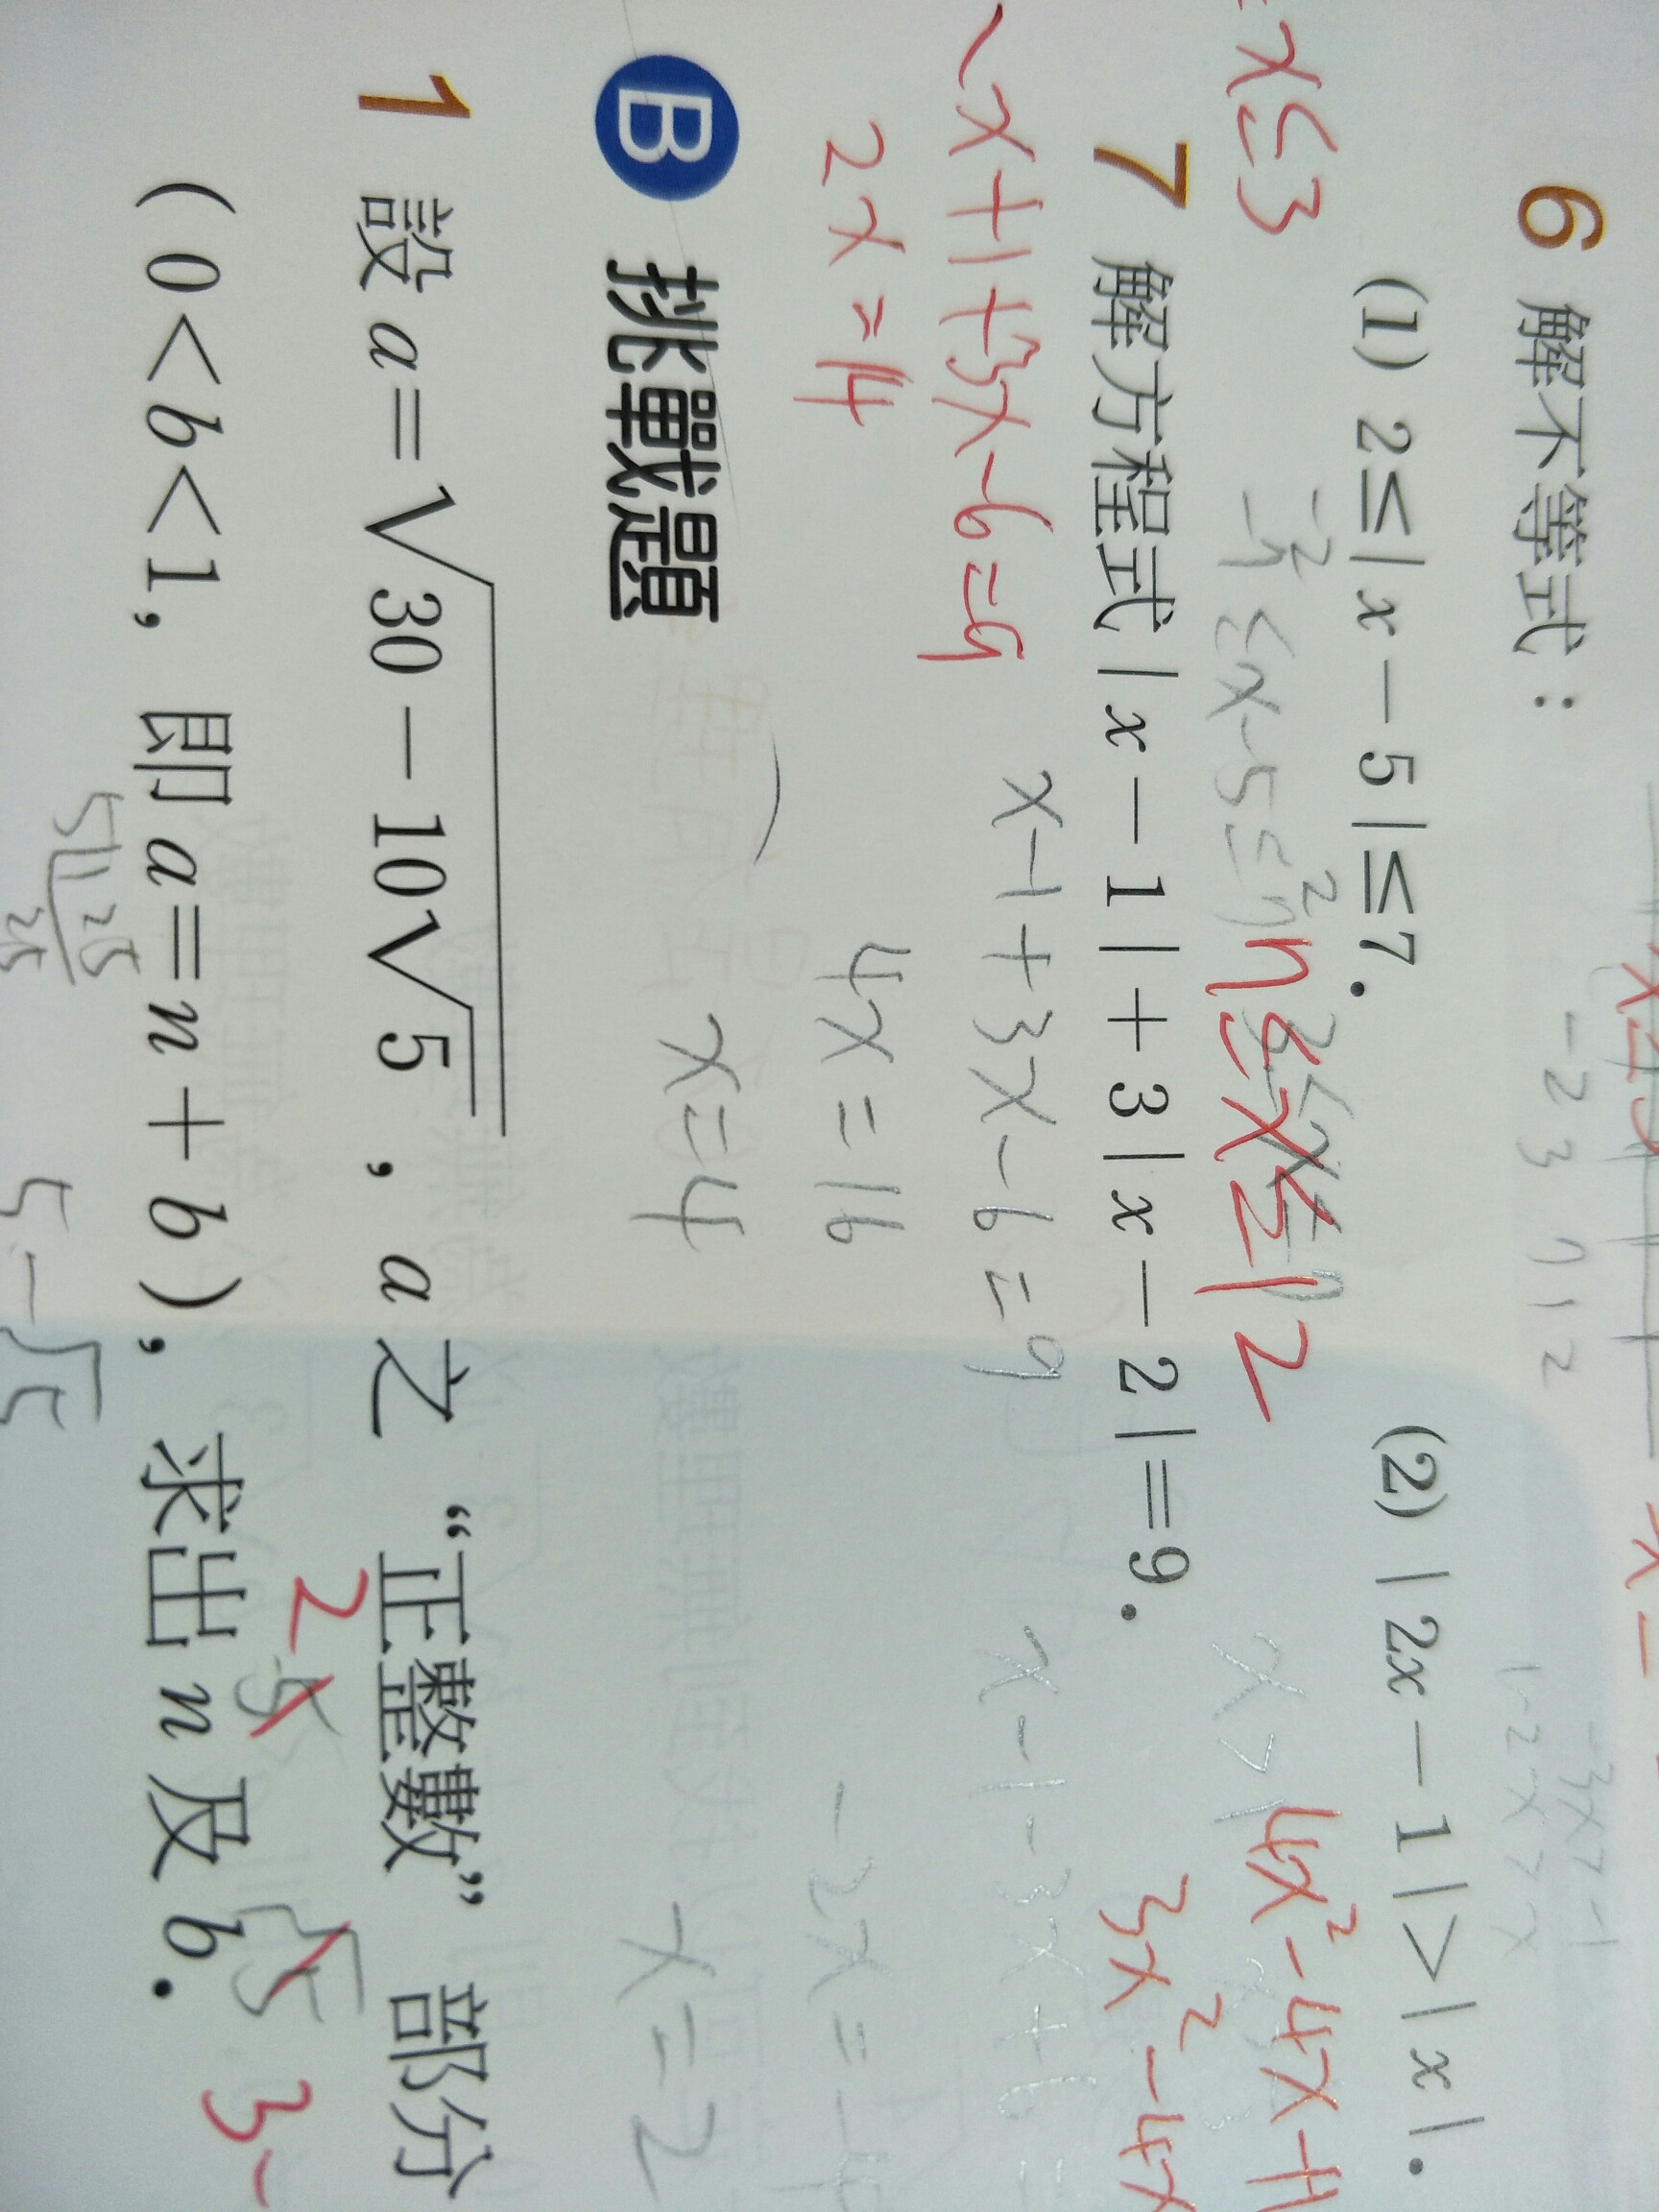 6 解不等式：
(1) 2≤|x－5|≤7．
(2) |2x－1|>|x|．
x≤3
-2 3 7 12
7≤x≤12
4x²-4x+1
3x²-4x
7 解方程式|x－1|+3|x－2|=9．
x-1+3x-6=9
-x+1+3x-6=9
4x=16
2x=14
x=4
x=2
B 挑戰題
1 設 a=√30－10√5，a 之“正整數”部分
(0<b<1，即 a=n+b)，求出 n 及 b．
2
3-
5-√5